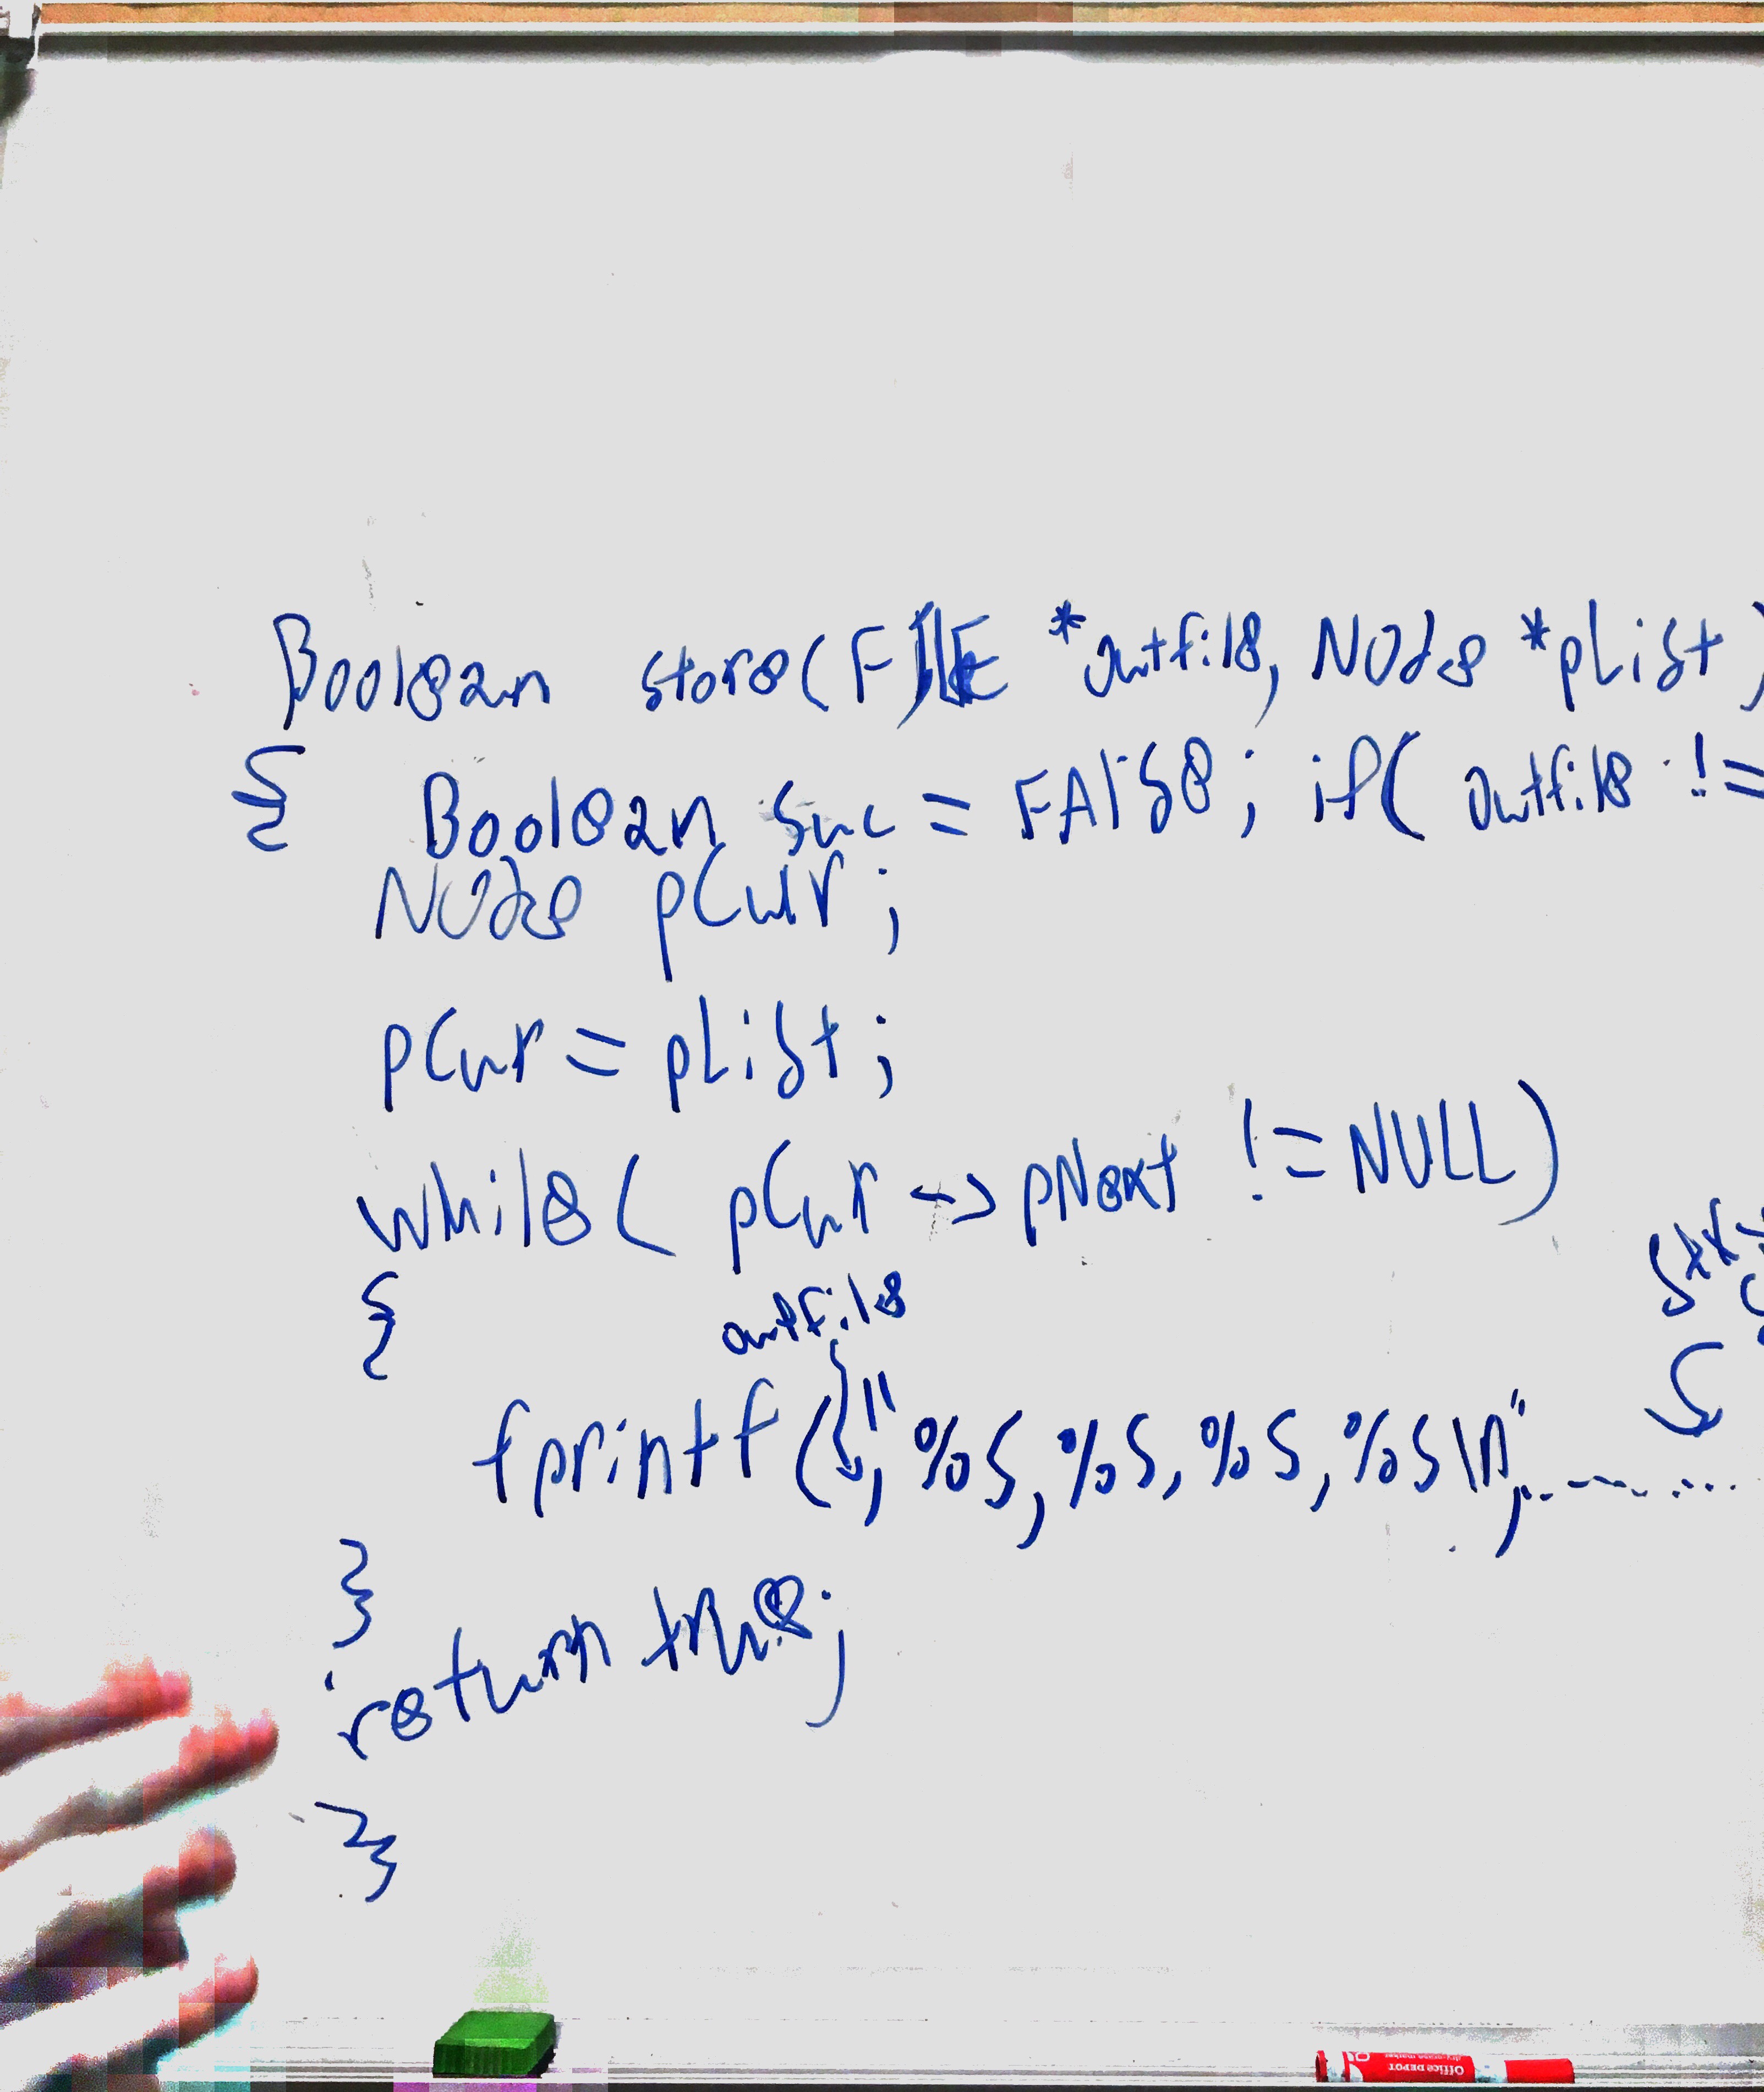 Boolean store(FILE *outfile, Node *pList)
{ Boolean suc = FAlse; if( outfile !=
Node pCur;
pCur = pList;
while( pCur -> pNext != NULL)
{
outfile
fprintf( , "%s, %s, %s, %s\n", ...........
}
return true;
}
Office DEPOT
dry-erase marker